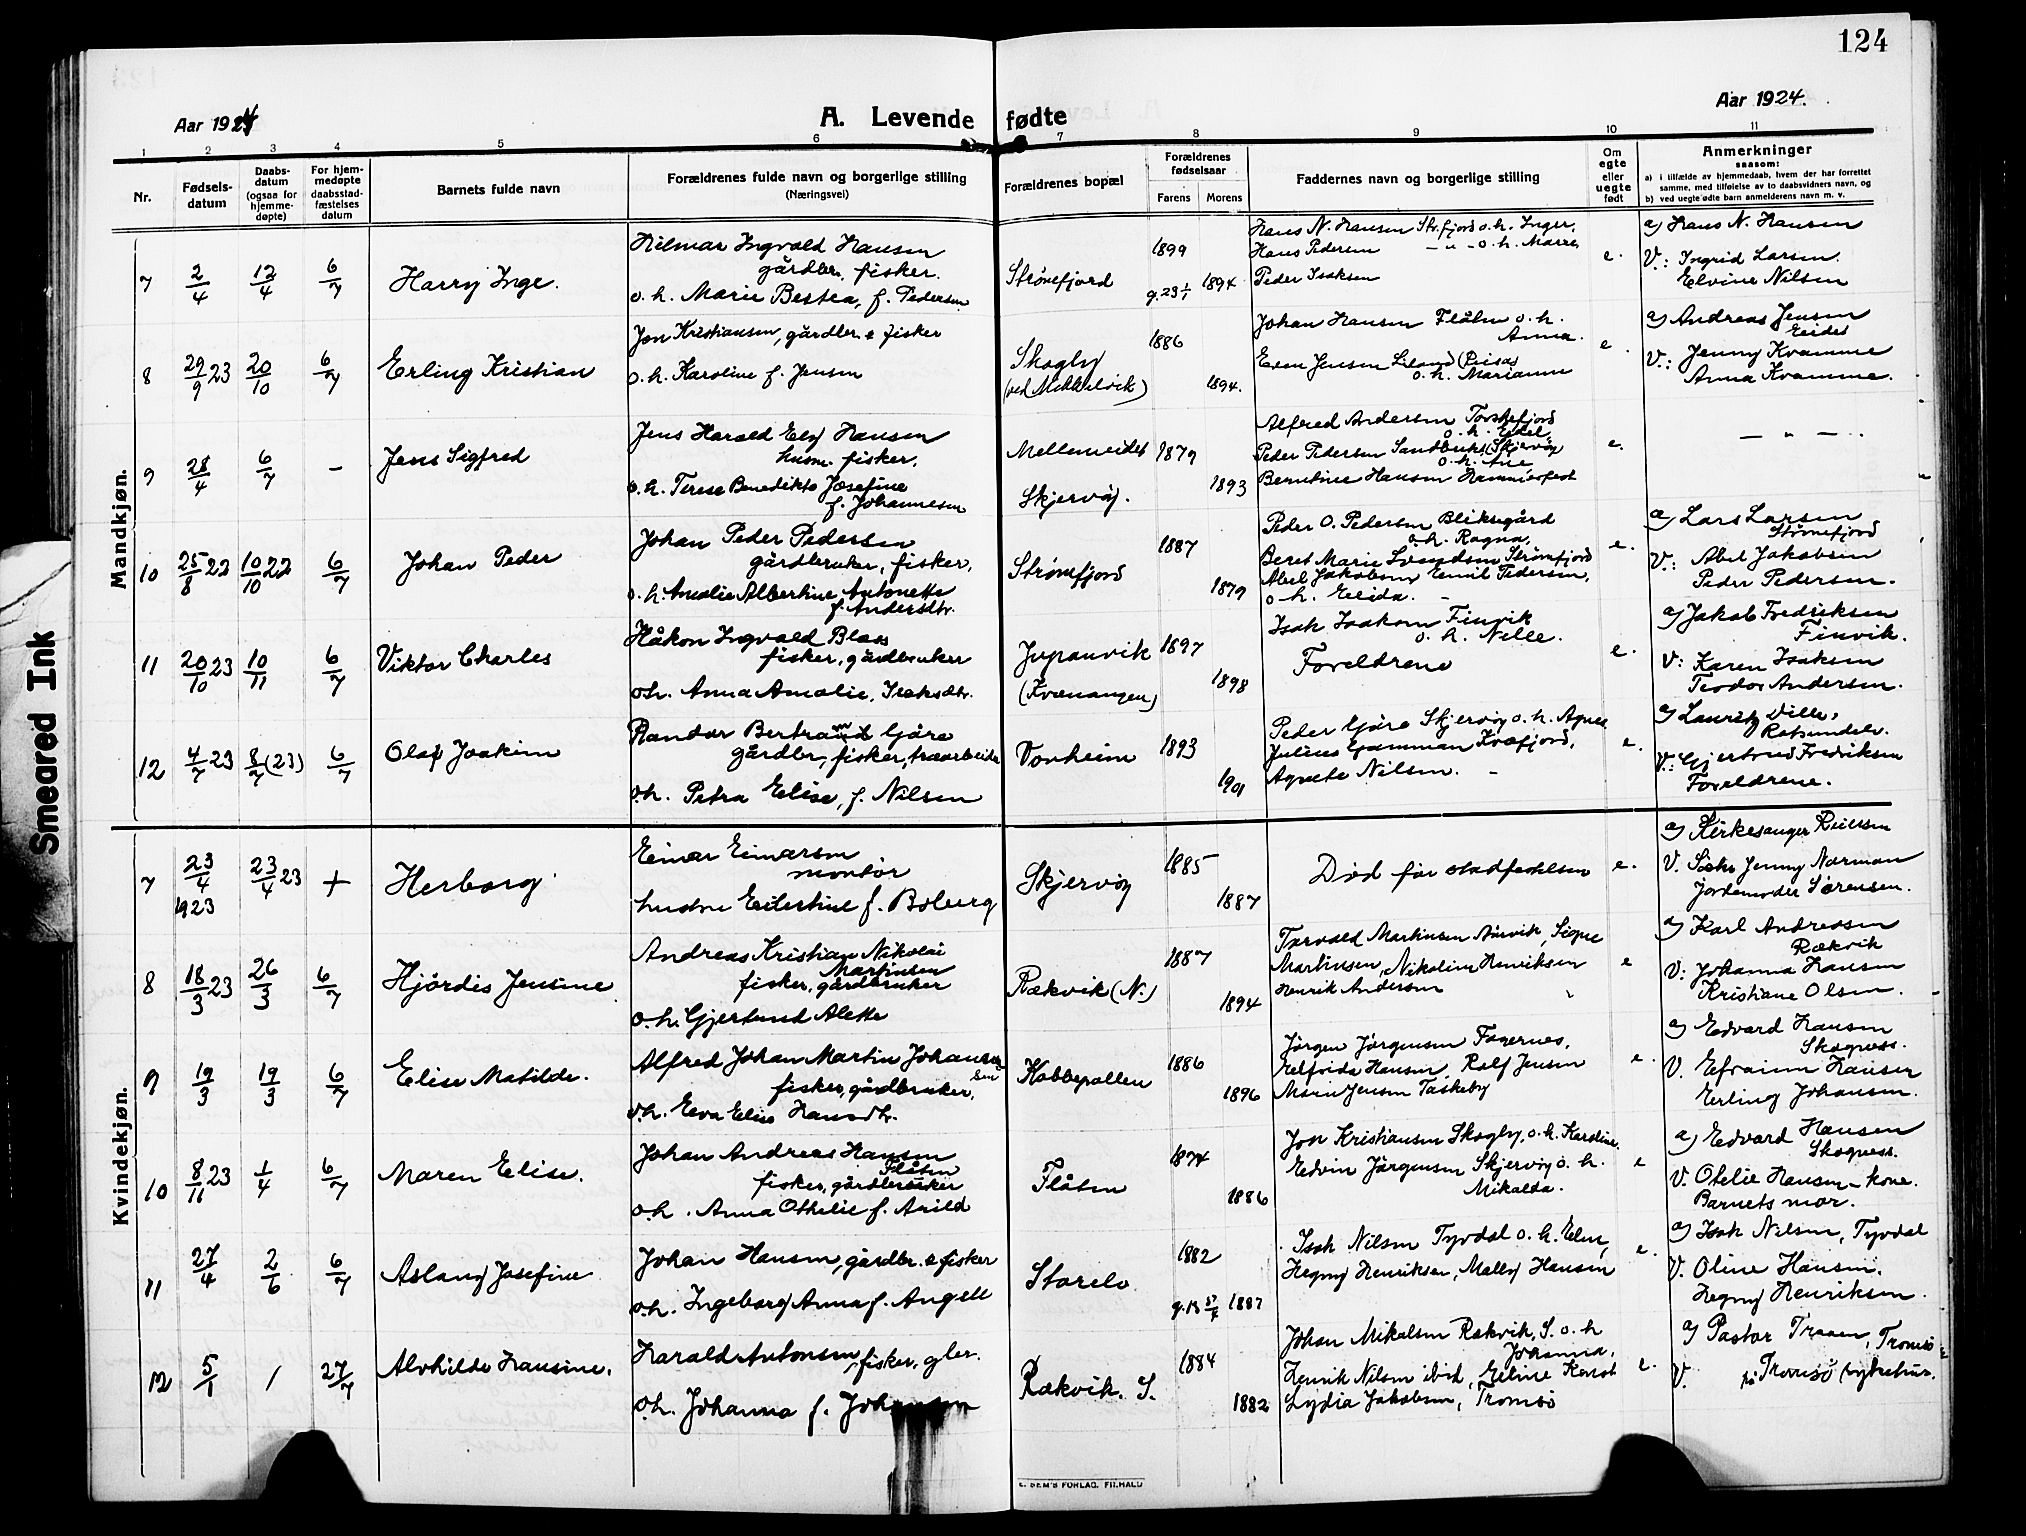 124
Aar 1924
A. Levende fødte
Aar 1924.
1 2 3 4 5 6 7 8 9 10 11
Nr.
Fødsels-
datum
Daabs-
datum
(ogsaa for
hjemme-
døpte)
For hjem-
medøpte
daabsstad-
fæstelses
datum
Barnets fulde navn
Forældrenes fulde navn og borgerlige stilling
(Næringsvei)
Forældrenes bopæl
Forældrenes
fødselsaar
Farens Morens
Faddernes navn og borgerlige stilling
Om
egte
eller
uegte
født
Anmerkninger
saasom:
a) i tilfælde av hjemmedaab, hvem der har forrettet
samme, med tilføielse av to daabsvidners navn, og
b) ved uegte ødte barn anmelderens navn m. v.
Mandkjøn.
7 2/4 12/4 6/7 Harry Inge.
Hilmar Ingvald Hansen
gårdbr. fisker.
o. h. Marie Bestea, f. Pedersen
Strømfjord
1899
g. 23 1894
Hans N. Hansen Str.fjord o. h. Inger,
Hans Pedersen — " — o. h.
Peder Isaksen
e.
a) Hans N. Hansen
V.: Ingrid Larsen.
Elvine Nilsen
8 29/9 23 20/10 6/7 Erling Kristian
Jon Kristiansen, gårdbr. & fisker
o. h. Karoline f. Jensen
Skogly
(ved Mikkelvik)
1886
1894.
Johan Hansen Flåten o. h.
Anna.
Even Jensen
o. h. Mariann
e.
a) Andreas Jensen
Eidet
V.: Jenny Kvamme
Anna Kvamme.
9 28/4 6/7 – Jens Sigfred
Jens Harald Hansen
husm. fisker.
o. h. Terese Benedikte Josefine
f. Johannesen
Mellemeidet
Skjervøy.
1879
1893
Alfred Andersen Torskefjord
o. h.
Peder Pedersen Skjervøy
o. h. Ane
Berntine Hansen Hammerfest
e.
— " — .
10 25/8 22 10/10 22 6/7 Johan Peder
Johan Peder Pedersen
gårdbruker, fisker,
o. h. Amalie Albertine Antonette
f. Andersdtr.
Strømfjord
1887
1879
Peder O. Pedersen Bliksegård
o. h. Ragna,
Beret Marie Strømfjord
Abel Jakobsen Emil Pedersen,
o. h. Elida. –
e.
a) Lars Larsen
Strømfjord
V.: Abel Jakobsen
Peder Pedersen.
11 20/10 23 10/11 6/7 Viktor Charles
Håkon Ingvald
fisker, gårdbruker
o. h. Anna Amalie, Isaksdtr.
(Kvænangen)
1897
1898
Isak Isaksen Finvik
o. h. Nelle.
Foreldrene
e.
a) Jakob Fredriksen
Finvik.
V: Karen Isaksen
Teodor Andersen.
12 4/7 23 8/7 (23) 6/7 Olaf Joakim
Randor Bertram Gåre
gårdbr., fisker, træarbeider
o. h. Petra Elise, f. Nilsen
Vonheim
1893
1901
Peder Gåre Skjervøy o. h. Agnes
Julius
Agnete Nilsen. –
e.
a) Lauritz Dille,
Rotsundelv.
V.: Gjertrud Fredriksen
Foreldrene.
Kvindekjøn.
7 23/4 1923 23/4 23 + Herborg
Einar Einarsen
montør
hustru f. Boberg
Skjervøy
1885
1887
Død før stadfestelsen
e.
a) Kirkesanger
V. Jenny Norman
Jordemoder Sørensen.
8 18/3 23 26/3 6/7 Hjørdis Jensine
Andreas Kristian Nikolai
Martinsen
fisker, gårdbruker
o. h. Gjertrud Alette
Rækvik (N.)
1887
1894
Torvald Martinsen Signe
Martinsen, Nikoline Henriksen
Henrik Andersen
e
a) Karl Andreassen
Rækvik
V: Johanna Hansen
Kristiane Olsen.
9 19/3 19/3 6/7 Elise Matilde.
Alfred Johan Martin Johansen
fisker, gårdbruker,
o. h. Eva Elise Hansdtr.
Kobbepollen
1886
1896
Jørgen Jørgensen Fagernes,
Elfrida Hansen, Rolf Jensen
Marie Jensen Taskeby
e.
a) Edvard Hansen
Skognes.
V. Efraim Hansen
Erling Johansen.
10 8/11 23 1/4 6/7 Maren Elise.
Johan Andreas Hansen
Flåten
fisker, gårdbruker
o. h. Anna Othelie f. Arild
Flåten
1874
1886
Jon Kristiansen Skogly, o. h. Karoline
Edvin Jørgensen Skjervøy o. h.
Mikalda.
e
a) Edvard Hansen
Skognes.
V. Otelie Hansen – kone.
Barnets mor.
11 27/4 2/6 6/7 Aslaug Josefine
Johan Hansen, gårdbr. & fisker
o. h. Ingeborg Anna f. Angell
Storelv
1882
1887
Isak Nilsen Tyvdal o. h.
Hegny Henriksen, Mally Hansen
e.
a) Isak Nilsen, Tyvdal
V. Oline Hansen.
Hegny Henriksen.
12 5/1 / 27/7 Alvhilde Hansine.
Harald Antonsen, fisker, gbr.
o. h. Johanna f. Johansen
Rækvik. S.
1884
1882
Johan Mikalsen Rækvik, S. o. h
Johanna,
Henrik Nilsen ibid, Eline
Lydia Jakobsen, Tromsø
e.
a) Pastor Traaen, Tromsø
V. på Tromsø sykehus.
E. SEM'S FORLAG. FR.HALD
Smeared Ink